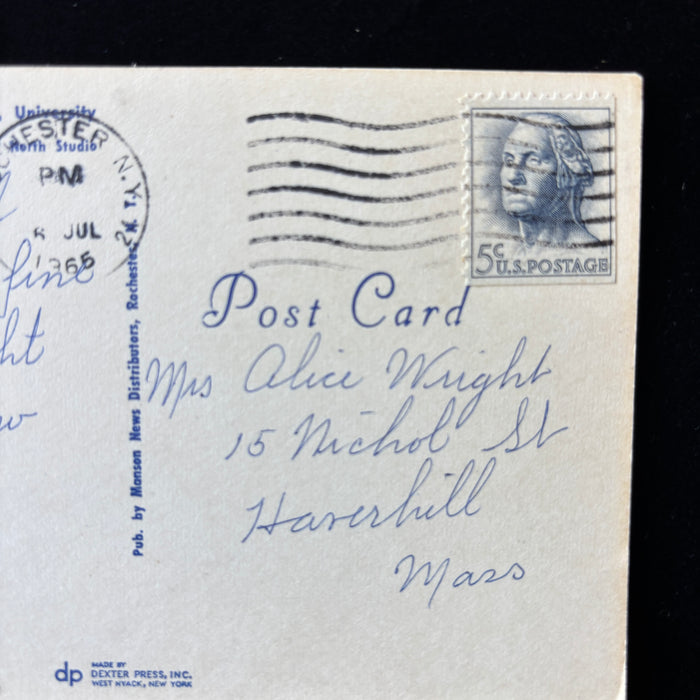 University
North Studio
CHESTER N.Y.
PM
JUL
1966
fine
5c U.S. POSTAGE
Post Card
Mrs Alice Wright
15 Nichol St
Haverhill
Mass
Pub. by Manson News Distributors, Rochester, N. Y.
dp
MADE BY
DEXTER PRESS, INC.
WEST NYACK, NEW YORK